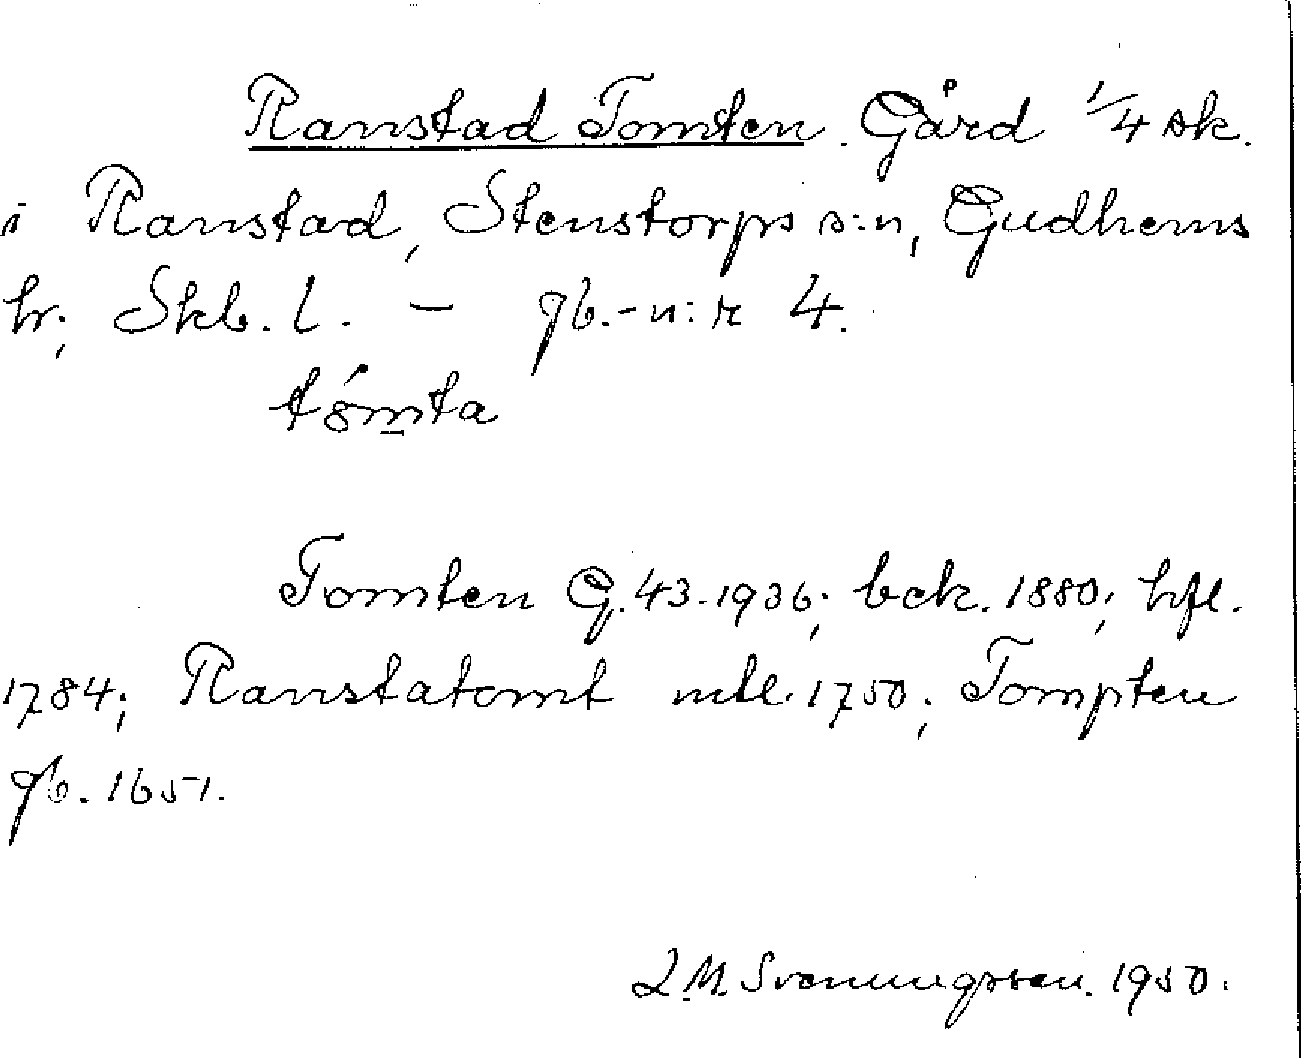 Ranstad Tomten. Gård 1/4 sk.
i Ranstad, Stenstorps s:n, Gudhems
hr, Skb. l. – jb.-n:r 4.
tómta
Tomten G. 43. 1936; bek. 1880; hfl.
1784; Ranstatomt mtl. 1750; Tompten
jb. 1651.
L M. Svenungsson. 1950.